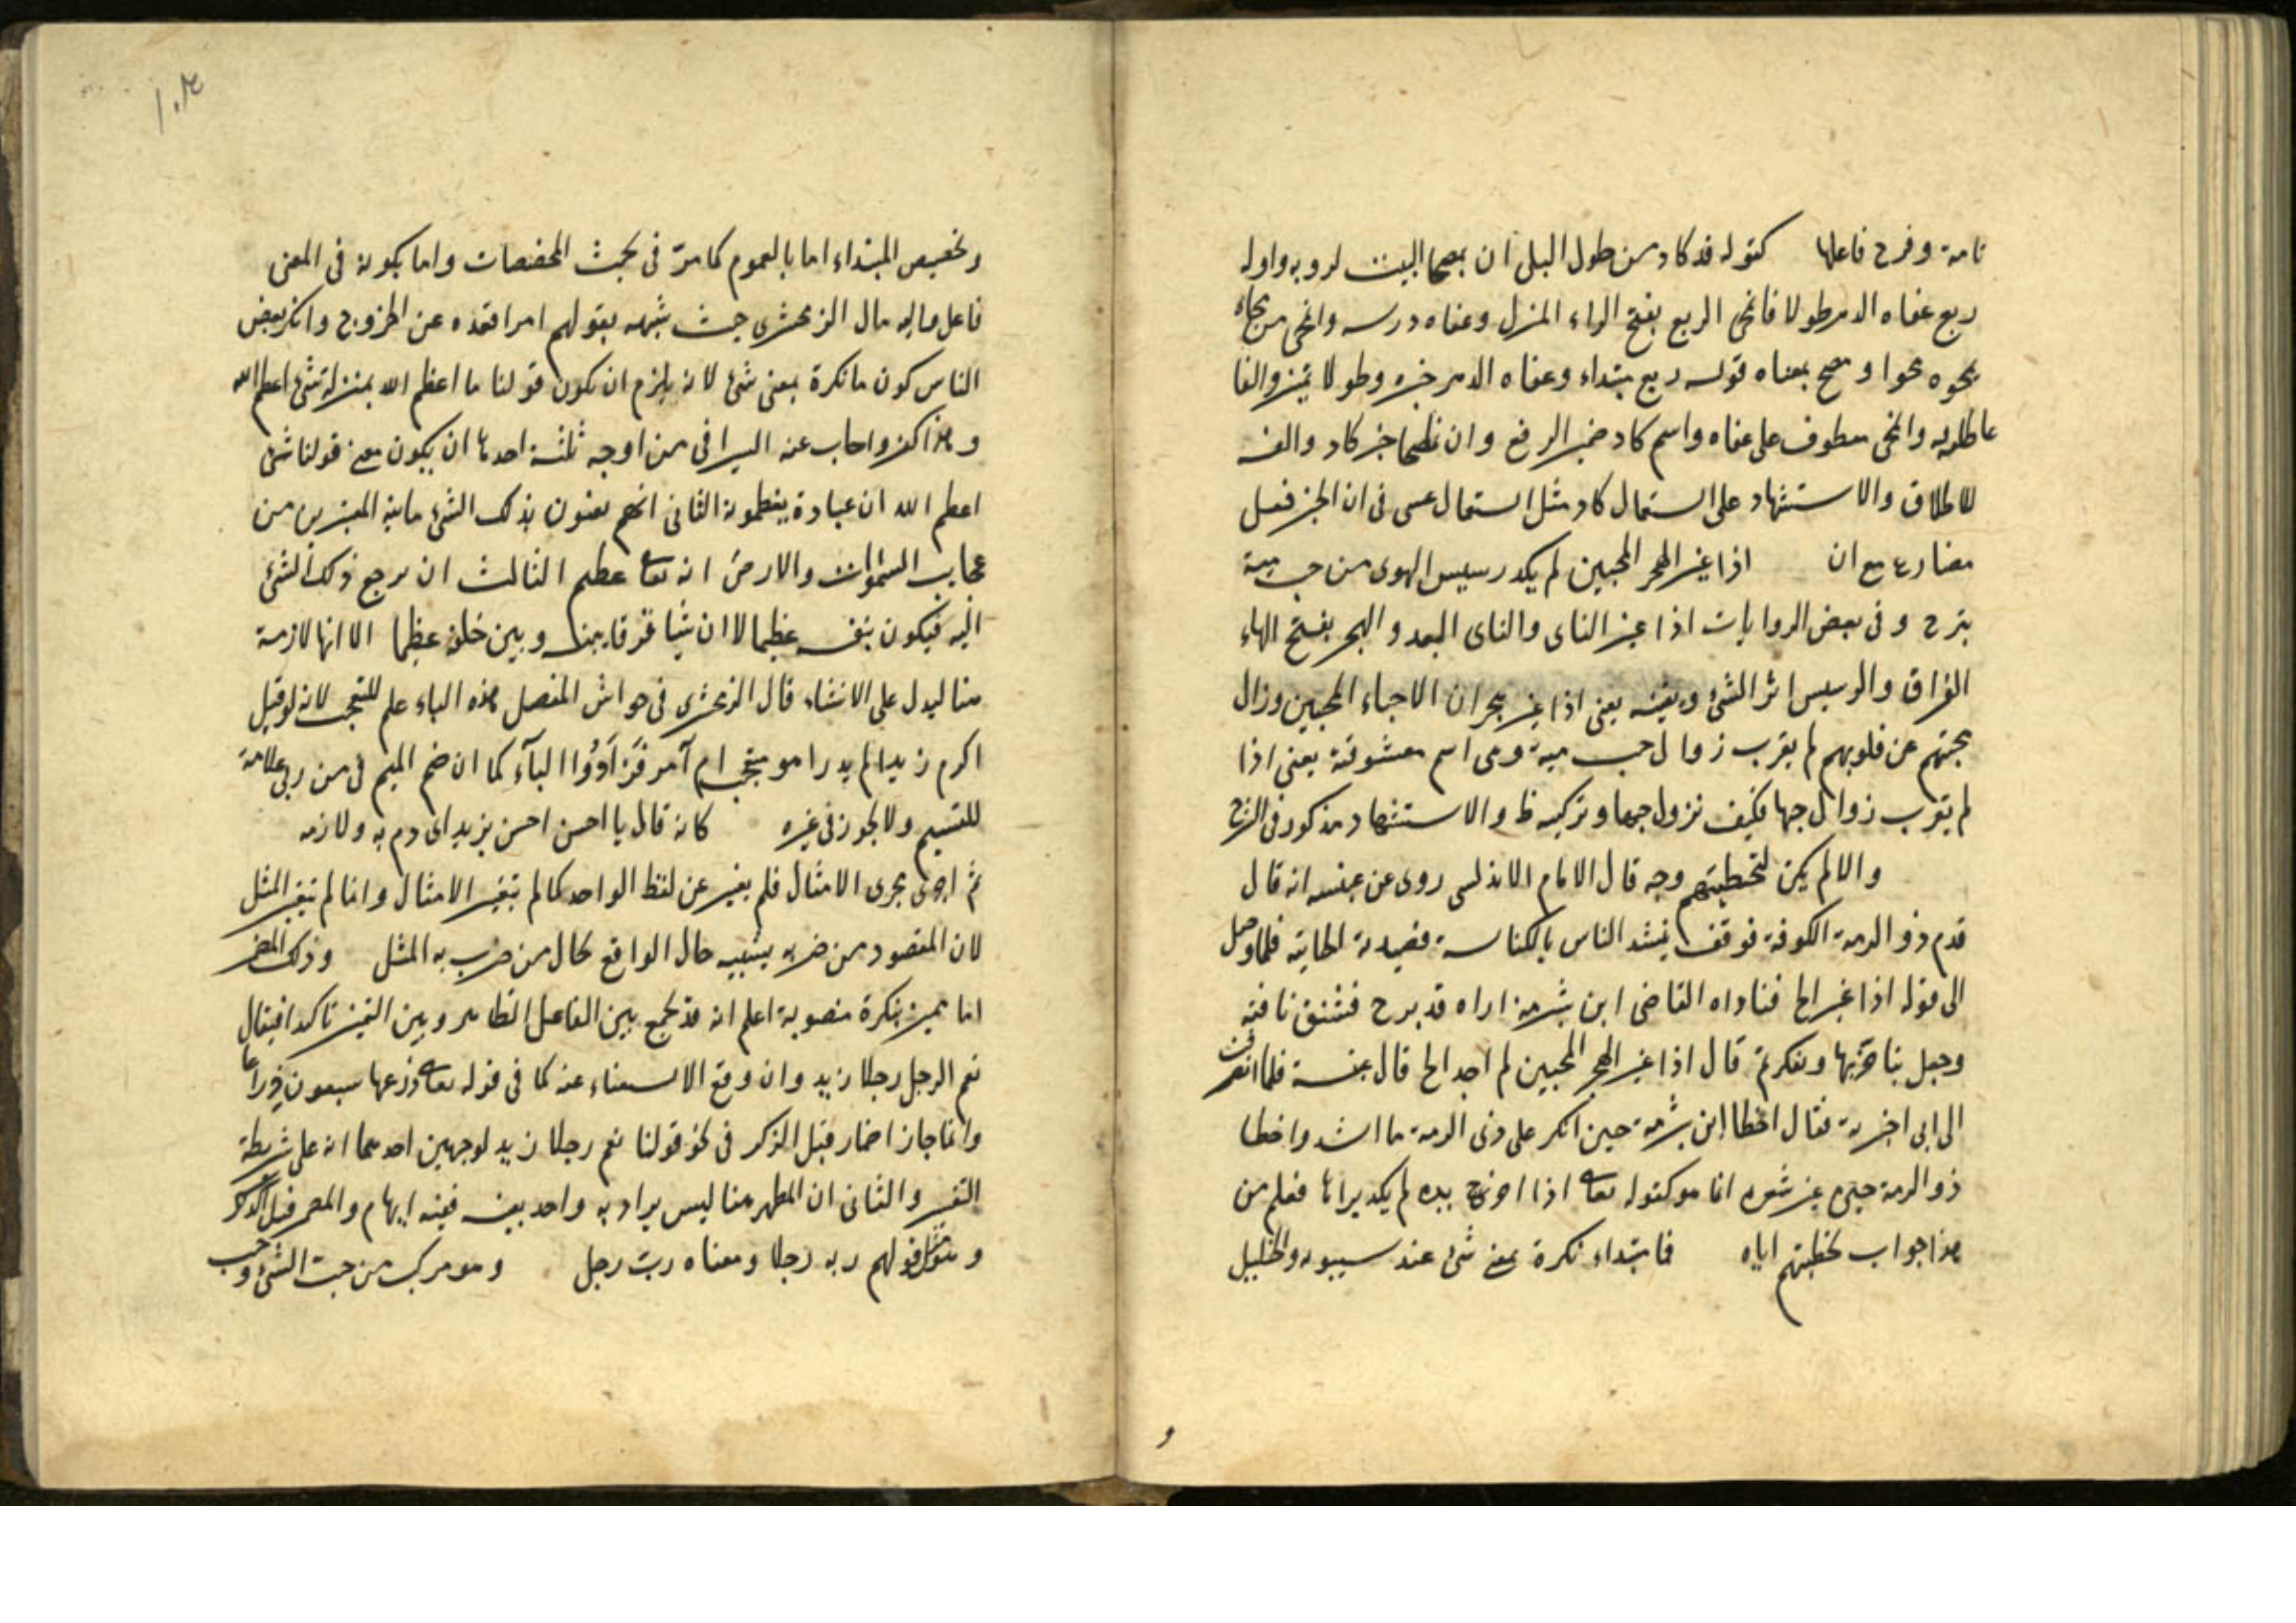 تامة وفرح فاعلها كقوله قد كاد من طول البلى ان يمصحا البيت لروبه واوله
ربع عفاه الدهر طولا فانمحى الربع بفتح الراء المنزل وعفاه درسه وانمحى من محاه
يمحوه محوا ومصح بمعناه قوله ربع مبتداء وعفاه الدهر خبره وطولا تميز والفا
عاطفة وانمحى معطوف على عفاه واسم كاد ضمير الربع وان يمصحا خبر كاد والفه
للاطلاق والاستشهاد على استعمال كاد مثل استعمال عسى فى ان الخبر فعل
مضارع مع ان اذا غير الهجر المحبين لم يكد رسيس الهوى من حب مية
يبرح وفى بعض الروايات اذا غير الناى والناى البعد والهجر بفتح الهاء
الفراق والرسيس اثر الشئ وبقيته يعنى اذا غير هجران الاحباء المحبين وزال
محبتهم عن قلوبهم لم يقرب زوال حب مية وهى اسم معشوقته يعنى اذا
لم يقرب زوال حبها فكيف نزول حبها وتركيبه ظ والاستشهاد مذكور فى الشرح
والا لم يكن لتخطيتهم وجه قال الامام الاندلسى روى عن عنبسه انه قال
قدم ذو الرمة الكوفة فوقف ينشد الناس بالكناسة قصيدته الحائية فلما وصل
الى قوله اذا غير الخ فناداه القاضى ابن شبرمة اراه قد برح فشنق ناقته
وجعل يتاخر بها ويفكر ثم قال اذا غير الهجر المحبين لم اجد الخ قال عنبسة فلما انصرفت
الى ابى اخبرته فقال اخطا ابن شبرمة حين انكر على ذى الرمة ما انشد واخطا
ذو الرمة حين غير شعره انما هو كقوله تعالى اذا اخرج يده لم يكد يراها فعلم من
هذا جواب تخطيتهم اياه فما مبتداء نكرة بمعنى شئ عند سيبويه والخليل
و
١٠٤
وتخصيص المبتداء اما بالعموم كما مر فى بحث المخصصات واما بكونه فى المعنى
فاعل واليه مال الزمخشرى حيث شبهه بقولهم امر اقعده عن الخروج وانكر بعض
الناس كون ما نكرة بمعنى شئ لانه يلزم ان يكون قولنا ما اعظم الله بمنزلة شئ اعظم الله
وهذا كفر واجاب عنه السيرافى من اوجه ثلثة احدها ان يكون معنى قولنا شئ
اعظم الله ان عبادة يعظمونه الثانى انهم يعنون بذلك الشئ ما ينبه المعتبرين من
عجايب السموات والارض انه تعالى عظيم الثالث ان يرجع ذلك الشئ
اليه فيكون بنفسه عظيما لا ان شيا فرقا بينه وبين خلقه عظيما الا انها لازمة
هنا ليدل على الانشاء قال الزمخشرى فى حواشى المفصل هذه الباء علم للتعجب لانه لو قيل
اكرم زيدا لم يدر اهو متعجب ام آمر فزادوا الباء كما ان ضم الميم فى من ربى علامة
للقسم ولا يجوز فى غيره كانه قال يا احسن احسن بزيد اى دم به ولازمه
ثم اجرى مجرى الامثال فلم يغير عن لفظ الواحد كما لم تتغير الامثال وانما لم تتغير المثل
لان المقصود من ضربه تشبيه حال الواقع بحال من ضرب به المثل وذلك المضمر
اما تميز بنكرة منصوبة اعلم انه قد يجمع بين الفاعل الظاهر وبين التميز تاكدا فيقال
نعم الرجل رجلا زيد وان وقع الاستغناء عنه كما فى قوله تعالى ذرعها سبعون ذراعا
وانما جاز اضمار قبل الذكر فى نحو قولنا نعم رجلا زيد لوجهين احدهما انه على شريطة
التفسير والثانى ان المظهر هنا ليس يراد به واحد بعينه ففيه ابهام والمضمر قبل الذكر
ومثل قولهم ربه رجلا ومعناه رب رجل وهو مركب من حبب الشئ وحب